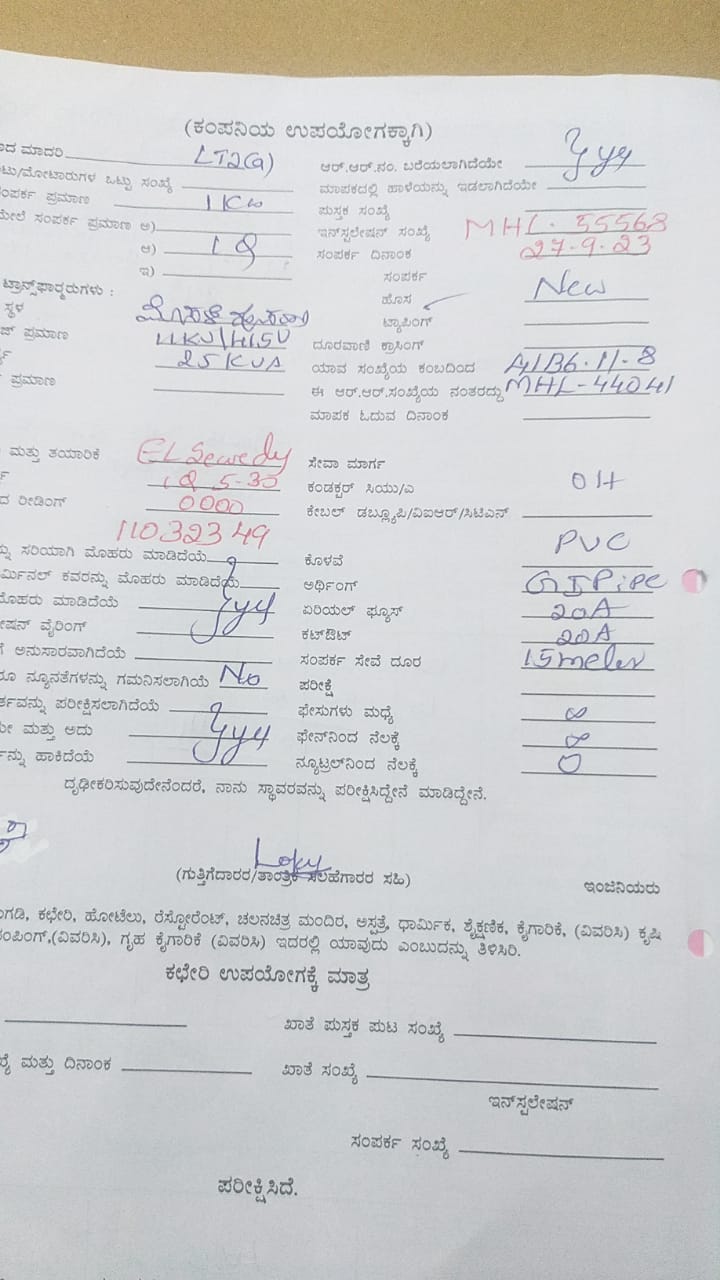 (ಕಂಪನಿಯ ಉಪಯೋಗಕ್ಕಾಗಿ)
ದ ಮಾದರಿ LT2(a) ಆರ್.ಆರ್.ನಂ. ಬರೆಯಲಾಗಿದೆಯೇ
ಟು/ಮೋಟಾರುಗಳ ಒಟ್ಟು ಸಂಖ್ಯೆ ಮಾಪಕದಲ್ಲಿ ಹಾಳೆಯನ್ನು ಇಡಲಾಗಿದೆಯೇ
ಂಪರ್ಕ ಪ್ರಮಾಣ 1KW ಪುಸ್ತಕ ಸಂಖ್ಯೆ
ಮೇಲೆ ಸಂಪರ್ಕ ಪ್ರಮಾಣ ಅ) ಇನ್‌ಸ್ಟಲೇಷನ್ ಸಂಖ್ಯೆ MHL-55568
ಆ) ಸಂಪರ್ಕ ದಿನಾಂಕ 27-9-23
ಇ) ಸಂಪರ್ಕ
ಟ್ರಾನ್ಸ್‌ಫಾರ್ಮರುಗಳು : ಹೊಸ New
ಸ್ಥಳ ಟ್ಯಾಪಿಂಗ್
ಜ್ ಪ್ರಮಾಣ 11KV\415V ದೂರವಾಣಿ ಕ್ರಾಸಿಂಗ್
25KVA ಯಾವ ಸಂಖ್ಯೆಯ ಕಂಬದಿಂದ
ಪ್ರಮಾಣ ಈ ಆರ್.ಆರ್.ಸಂಖ್ಯೆಯ ನಂತರದ್ದು MHL-44041
ಮಾಪಕ ಓದುವ ದಿನಾಂಕ
ಮತ್ತು ತಯಾರಿಕೆ EL Sewedy ಸೇವಾ ಮಾರ್ಗ
5-30 ಕಂಡಕ್ಟರ್ ಸಿಯು/ಎ OH
ದ ರೀಡಿಂಗ್ 0000 ಕೇಬಲ್ ಡಬ್ಲ್ಯೂಪಿ/ವಿಐಆರ್/ಸಿಟಿಎಸ್
11032349
ನ್ನು ಸರಿಯಾಗಿ ಮೊಹರು ಮಾಡಿದೆಯೆ ಕೊಳವೆ PVC
ರ್ಮಿನಲ್ ಕವರನ್ನು ಮೊಹರು ಮಾಡಿದೆಯೆ ಅರ್ಥಿಂಗ್ GI Pipe
ಮೊಹರು ಮಾಡಿದೆಯೆ ಏರಿಯಲ್ ಫ್ಯೂಸ್ 20A
ೇಷನ್ ವೈರಿಂಗ್ ಕಟ್‌ಔಟ್ 20A
ೆ ಅನುಸಾರವಾಗಿದೆಯೆ ಸಂಪರ್ಕ ಸೇವೆ ದೂರ 15 meter
ೂ ನ್ಯೂನತೆಗಳನ್ನು ಗಮನಿಸಲಾಗಿಯೆ No ಪರೀಕ್ಷೆ
ರ್ತವನ್ನು ಪರೀಕ್ಷಿಸಲಾಗಿದೆಯೆ ಫೇಸುಗಳು ಮಧ್ಯೆ ∞
ೀ ಮತ್ತು ಅದು ಫೇಸ್‌ನಿಂದ ನೆಲಕ್ಕೆ ∞
ನ್ನು ಹಾಕಿದೆಯೆ ನ್ಯೂಟ್ರಲ್‌ನಿಂದ ನೆಲಕ್ಕೆ 0
ದೃಢೀಕರಿಸುವುದೇನೆಂದರೆ, ನಾನು ಸ್ಥಾವರವನ್ನು ಪರೀಕ್ಷಿಸಿದ್ದೇನೆ ಮಾಡಿದ್ದೇನೆ.
(ಗುತ್ತಿಗೆದಾರರ/ತಾಂತ್ರಿಕ ಸಲಹೆಗಾರರ ಸಹಿ) ಇಂಜಿನಿಯರು
ಂಗಡಿ, ಕಛೇರಿ, ಹೋಟೆಲು, ರೆಸ್ಟೋರೆಂಟ್, ಚಲನಚಿತ್ರ ಮಂದಿರ, ಅಸ್ಪತ್ರೆ, ಧಾರ್ಮಿಕ, ಶೈಕ್ಷಣಿಕ, ಕೈಗಾರಿಕೆ, (ವಿವರಿಸಿ) ಕೃಷಿ
ಂಪಿಂಗ್,(ವಿವರಿಸಿ), ಗೃಹ ಕೈಗಾರಿಕೆ (ವಿವರಿಸಿ) ಇದರಲ್ಲಿ ಯಾವುದು ಎಂಬುದನ್ನು ತಿಳಿಸಿರಿ.
ಕಛೇರಿ ಉಪಯೋಗಕ್ಕೆ ಮಾತ್ರ
ಖಾತೆ ಪುಸ್ತಕ ಪುಟ ಸಂಖ್ಯೆ
ಖ್ಯೆ ಮತ್ತು ದಿನಾಂಕ ಖಾತೆ ಸಂಖ್ಯೆ
ಇನ್‌ಸ್ಟಲೇಷನ್
ಸಂಪರ್ಕ ಸಂಖ್ಯೆ
ಪರೀಕ್ಷಿಸಿದೆ.